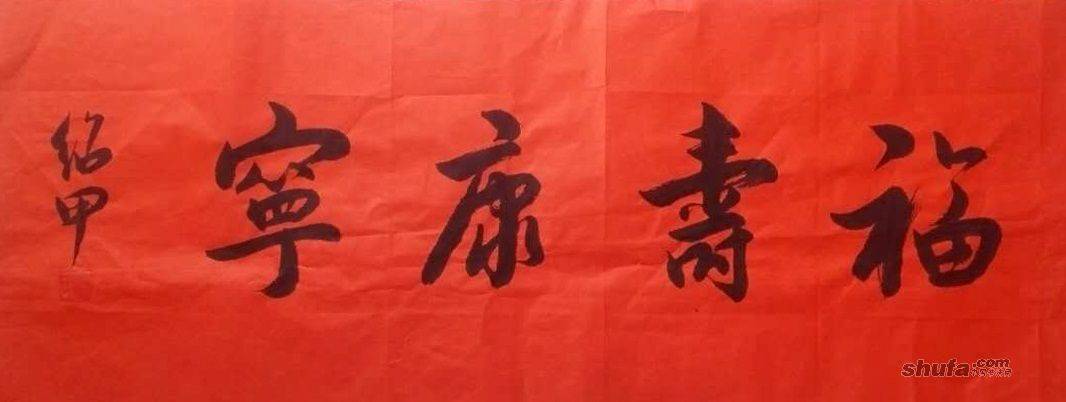 福壽康寧
绍甲
shufa.com